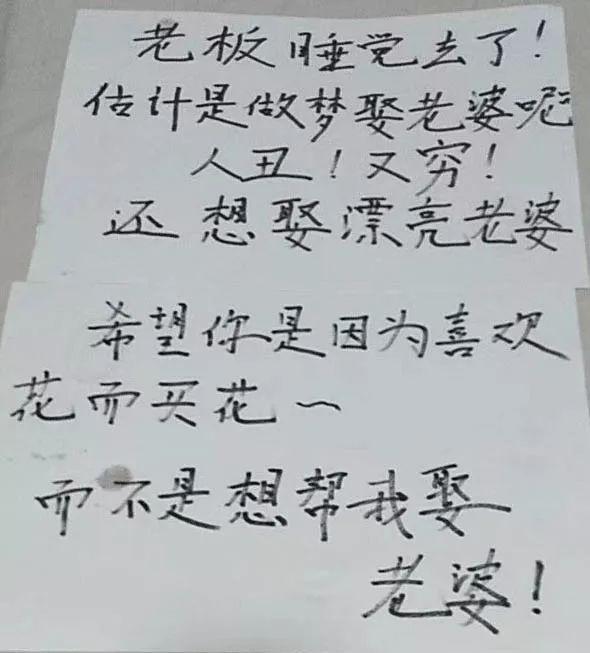 老板睡觉去了!
估计是做梦娶老婆呢
人丑!又穷!
还想娶漂亮老婆
希望你是因为喜欢
花而买花~
而不是想帮我娶
老婆!